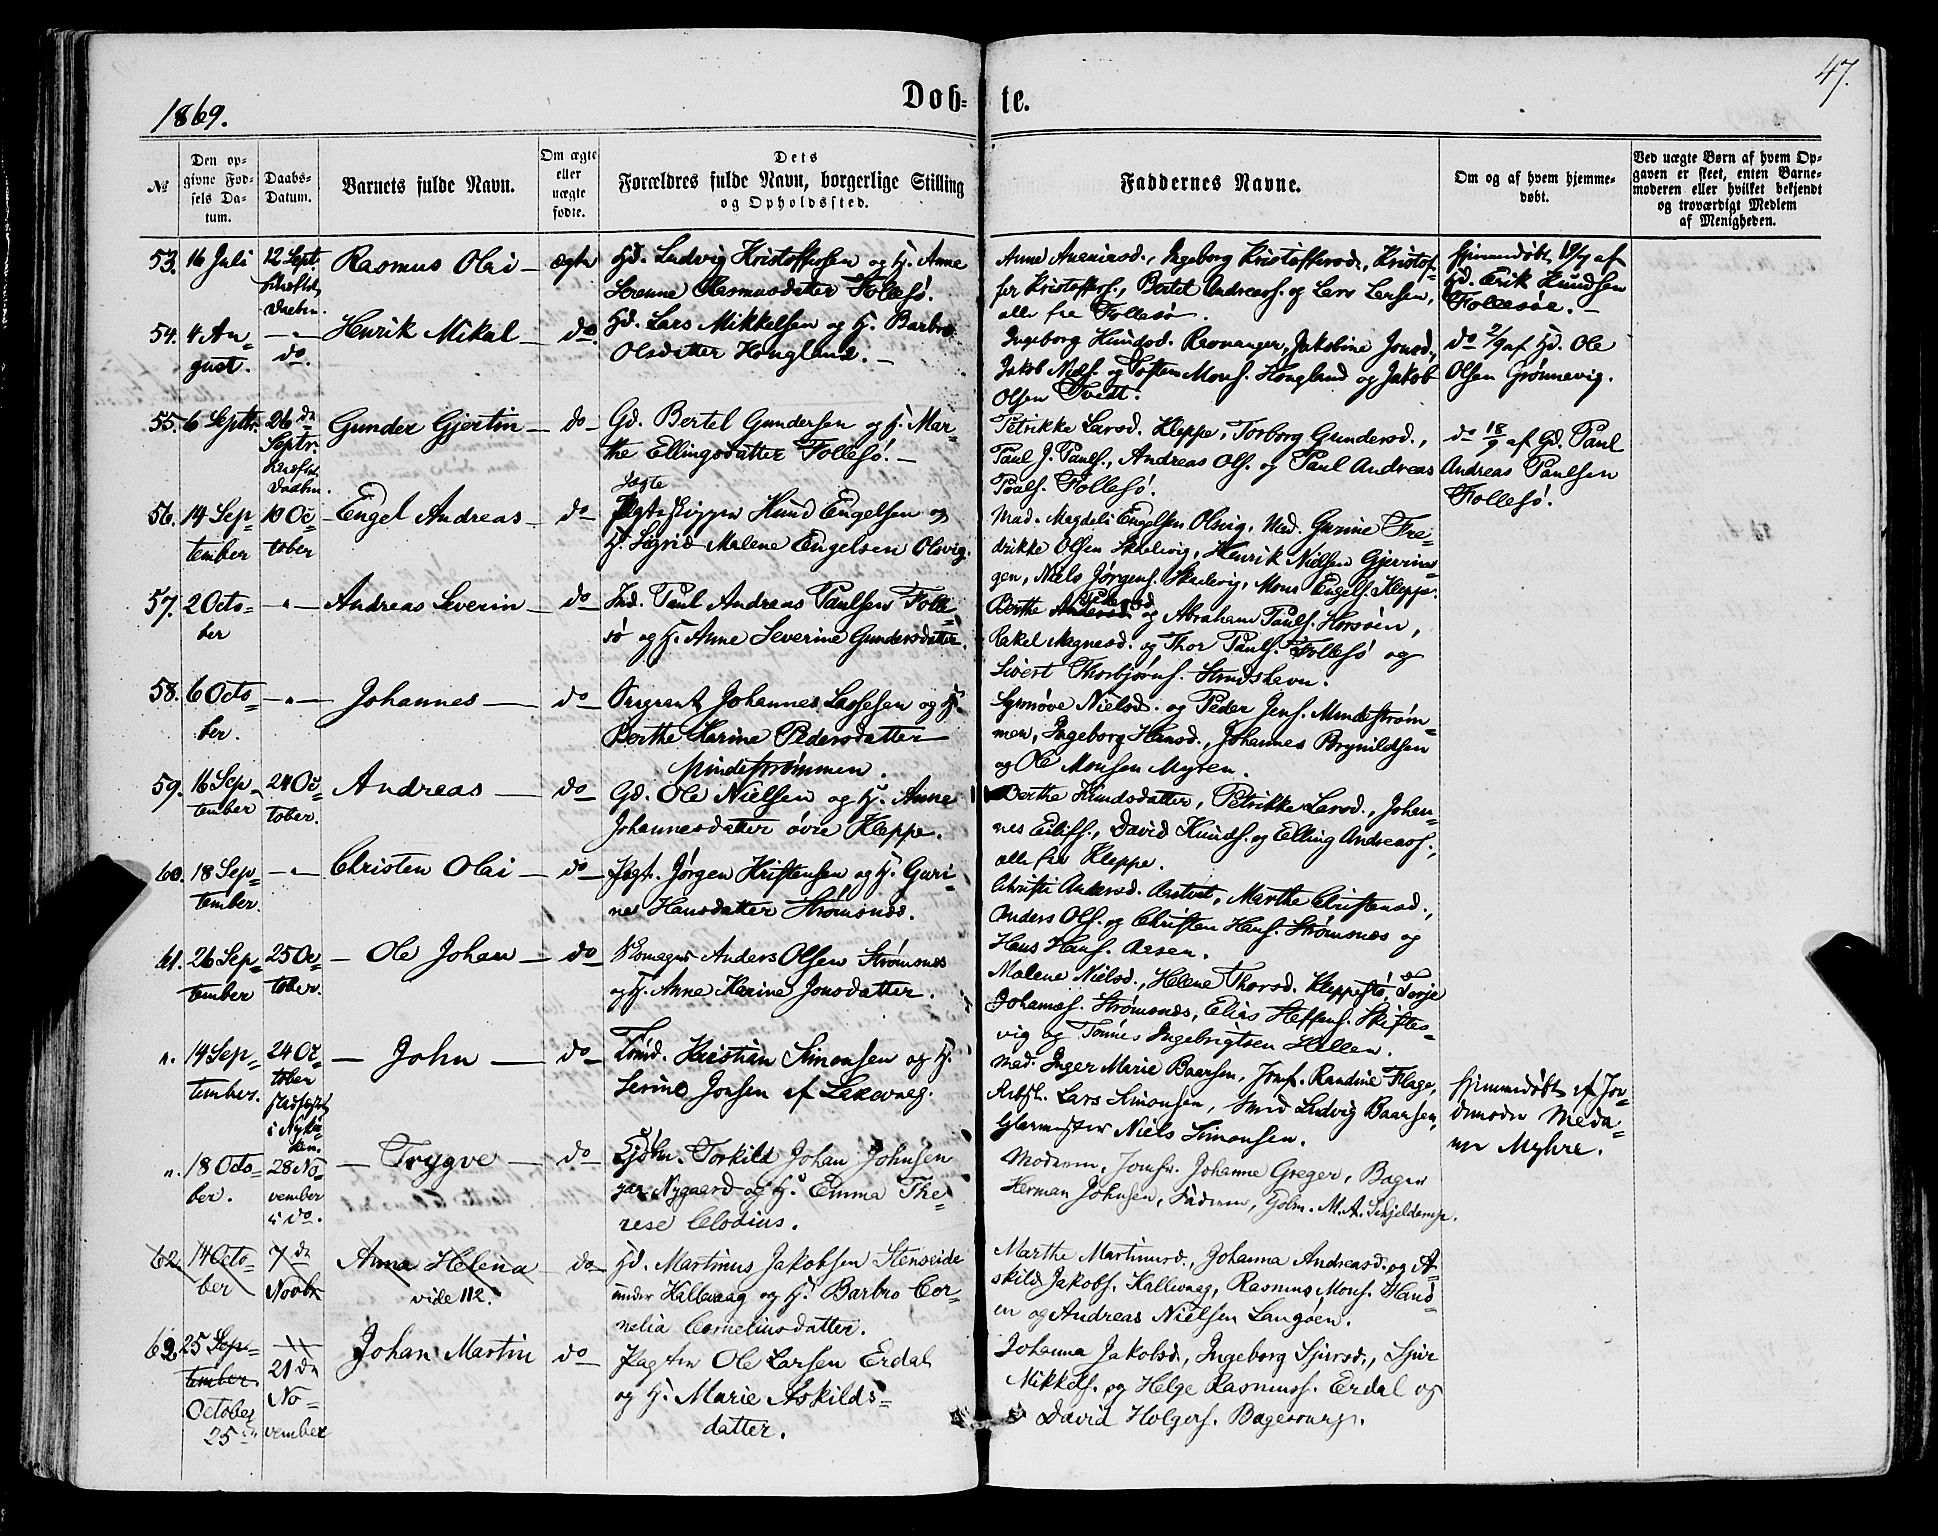 1869.
Døb-
te.
47.
№
Den op-
givne Fød-
sels Da-
tum.
Daabs-
Datum.
Barnets fulde Navn.
Om ægte
eller
uægte
fødte.
Dets
Forældres fulde Navn, borgerlige Stilling
og Opholdssted.
Faddernes Navne.
Om og af hvem hjemme-
døbt.
Ved uægte Børn af hvem Op-
gaven er skeet, enten Barne-
moderen eller hvilket bekjendt
og troværdigt Medlem
af Menigheden.
53. 16 Juli
12 Sept.
Daaben.
Rasmus Olai – ægte
Gd. Ludvig Kristoffersen og H. Anne
Serenne Rasmusdatter Follesø.
Anne Ananiasd., Ingeborg Kristoffersd., Kristof-
fer Kristoffers., Bertel Andreass. og Lars Larsen,
alle fra Follesø.
Hjemmedøbt 19/7 af
Gd. Erik Knudsen
Follesøe. –
54. 4 Au-
gust.
– " –
do.
Henrik Mikal – do.
Gd. Lars Mikkelsen og H. Barbro
Olsdatter Hougland. –
Ingeborg Knudsd. Ravnanger, Jakobine Jonsd.,
Jakob Niels. og Tosten Mons. Hougland og Jakob
Olsen Tvedt.
do 2/9 af Gd. Ole
Olsen Grønnevig.
55. 6 Septbr.
26 de
Septr.
Daaben.
Gunder Gjertin – do –
Gd. Bertel Gundersen og H. Mar-
the Ellingsdatter Follesø. –
Petrikke Larsd. Kleppe, Torborg Gundersd.,
Paul J. Pauls., Andreas Ols. og Paul Andreas
Pauls. Follesø.
do 18/9 af Gd. Paul
Andreas Paulsen
Follesø.
56. 14 Sep-
tember
10 Oc-
tober
– Engel Andreas – do
Jægte
Jægteskipper Knud Engelsen og
H. Sigrid Malene Engelsen Olsvig.
Mad. Magdeli Engelsen Olsvig, Mad. Gurine Fre-
drikke Olsen Skulevig, Henrik Nielsen Gjervin-
gen, Niels Jørgens. Skulevig, Mons Engels. Kleppe.
57. 2 Octo-
ber
– " –
Andreas Severin – do
Ind. Paul Andreas Paulsen Folle-
sø og H. Anne Severine Gundersdatter.
Berthe og Abraham Pauls. Horsøen,
Rakel Magnesd. og Thor Pauls. Follesø og
Sivert Thorbjørns. Strudshavn.
58. 6 Octo-
ber.
– " –
Johannes – do –
Johannes Lassesen og H.
Berthe Karine Pedersdatter
Mindestrømmen.
Synnøve Nielsd. og Peder Jens. Mindestrøm-
men, Ingeborg Hansd., Johannes Brynildsen
og Ole Monsen Myren.
59. 16 Sep-
tember
24 Oc-
tober.
Andreas – do
Gd. Ole Nielsen og H. Anne
Johannesdatter øvre Kleppe.
Berthe Knudsdatter, Petrikke Larsd., Johan-
nes Eilifs., David Knuds. og Elling Andreass.,
alle fra Kleppe.
60. 18 Sep-
tember.
– " –
Christen Olai – do –
Jægt. Jørgen Kristensen og H. Guri-
ne Hansdatter Strømsnæs.
Christi Andersd. Aastvet, Marthe Christensd.,
Anders Ols. og Christen Hans. Strømsnæs og
Hans Hans. Aasen.
61. 26 Sep-
tember
25 Oc-
tober.
– Ole Johan – do
Anders Olsen Strømsnæs
og H. Anne Karine Jonsdatter.
Malene Nielsd., Helene Thorsd. Kleppestø, Terje
Johannes. Strømsnæs, Elias Steffens. Skiftes-
vig og Tønnes Ingebrigtsen Hillen.
n. 14 Sep-
tember.
24 Oc-
tober
– John – do
Kristian Simonsen og H.
Serine Jonsen af Laxevaag.
Mad. Inger Marie Baarsen, Jomf. Randine Flage,
Lars Simonsen, Smed Ludvig Baarsen,
Glarmester Niels Simonsen.
Hjemmedøbt af Jor-
demoder Mada-
me Myhre.
n. 18 Octo-
ber.
28 No-
vember
i do.
– Trygve – do
Torkild Johan Johnsen
Nygaard og H. Emma The-
rese Clodius.
Moderen, Jomfr. Johanne Greger, Bager
Herman Johnsen, Faderen, M. A. Schjelderup.
62. 14 Octo-
ber
7 de
Novbr
Anna Helena
vide 112.
do
Gd. Martinus Jakobsen Stenseide
under Kallevaag og H. Barbro Cor-
nelia Corneliusdatter.
Marthe Martinusd., Johanna Andreasd. og A-
skild Jakobs. Kallevaag, Rasmus Mons. Hanø-
en og Andreas Nielsen Langøen.
62 25 Sep-
tember.
October
25
– " –
21 de
No-
vember
Johan Martin do
Ole Larsen Erdal
og H. Marie Askilds-
datter.
Johanna Jakobsd., Ingeborg Sjursd., Sjur
Mikkels. og Helge Rasmuss. Erdal og
David Holgers.